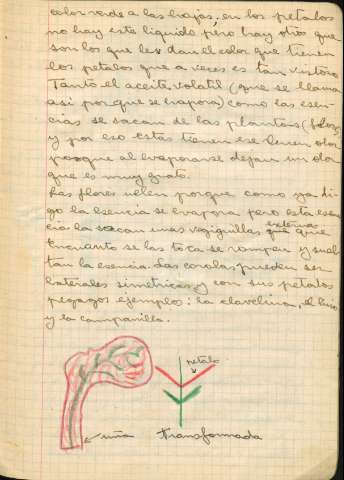 color verde a las hojas, en los petalos
no hay este liquido pero hay otros que
son los que les dan el color que tienen
los petalos que a veces es tan vistoso
Tanto el aceite volatil (que se llama
asi porque se evapora) como las esen-
cias se sacan de las plantas (flores)
y por eso estas tienen ese buen olor
porque al evaporarse dejan un olor
que es muy grato.
Las flores uelen porque como ya di-
go la esencia se evapora pero esta esen
cia la sacan unas vegiguillas externas que
encuanto se las toca se rompen y suel
tan la esencia. Las corolas pueden ser
laterales simetricas y con sus petalos
pegagos ejemplos: la clavelina, el lirio
y la campanilla.
petalo
uña
transformada